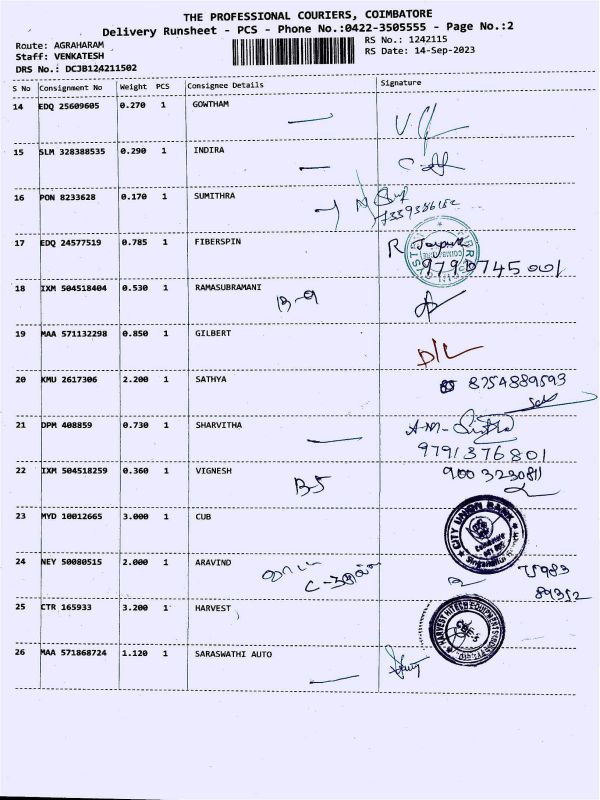 THE PROFESSIONAL COURIERS, COIMBATORE
Delivery Runsheet - PCS - Phone No.:0422-3505555 - Page No.:2
Route: AGRAHARAM
RS No.: 1242115
Staff: VENKATESH
RS Date: 14-Sep-2023
DRS No.: DCJB124211502
S No Consignment No Weight PCS Consignee Details Signature
14 EDQ 25609605 0.270 1 GOWTHAM
15 SLM 328388535 0.290 1 INDIRA
16 PON 8233628 0.170 1 SUMITHRA
17 EDQ 24577519 0.785 1 FIBERSPIN
9790745001
18 IXM 504518404 0.530 1 RAMASUBRAMANI
B-9
19 MAA 571132298 0.850 1 GILBERT
D/L
20 KMU 2617306 2.200 1 SATHYA
8754889593
21 DPM 408859 0.730 1 SHARVITHA
9791376801
22 IXM 504518259 0.360 1 VIGNESH
B5
23 MYD 10012665 3.000 1 CUB
CITY UNION BANK
24 NEY 50080515 2.000 1 ARAVIND
75983
89352
25 CTR 165933 3.200 1 HARVEST
26 MAA 571868724 1.120 1 SARASWATHI AUTO